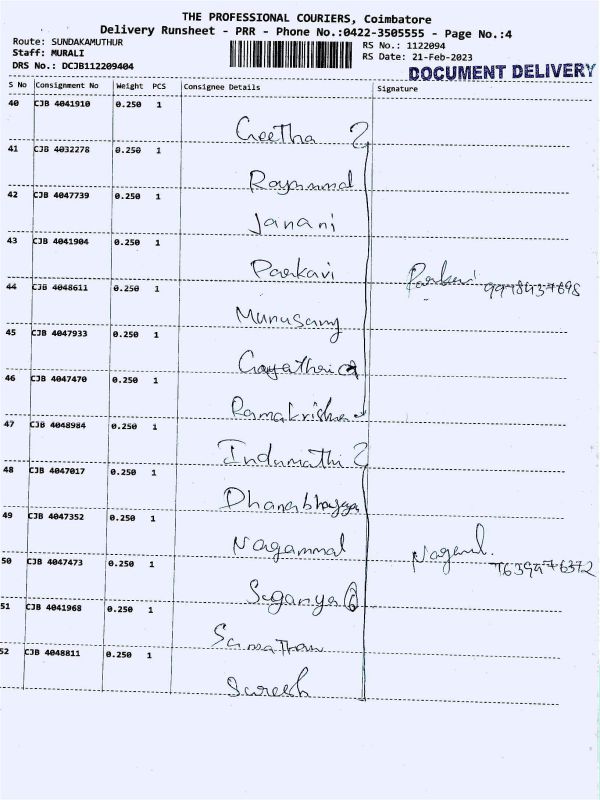 THE PROFESSIONAL COURIERS, Coimbatore
Delivery Runsheet - PRR - Phone No.:0422-3505555 - Page No.:4
Route: SUNDAKAMUTHUR
RS No.: 1122094
Staff: MURALI
RS Date: 21-Feb-2023
DRS No.: DCJB112209404
DOCUMENT DELIVERY
S No Consignment No Weight PCS Consignee Details Signature
40 CJB 4041910 0.250 1
Geetha
41 CJB 4032278 0.250 1
Rayammal
42 CJB 4047739 0.250 1
Janani
43 CJB 4041904 0.250 1
Parkavi
44 CJB 4048611 0.250 1
Munusamy
45 CJB 4047933 0.250 1
Gayathri
46 CJB 4047470 0.250 1
Ramakrishna
47 CJB 4048984 0.250 1
Indumathi
48 CJB 4047017 0.250 1
Dhanabhagya
49 CJB 4047352 0.250 1
Nagammal
50 CJB 4047473 0.250 1
Suganya
51 CJB 4041968 0.250 1
52 CJB 4048811 0.250 1
Suresh